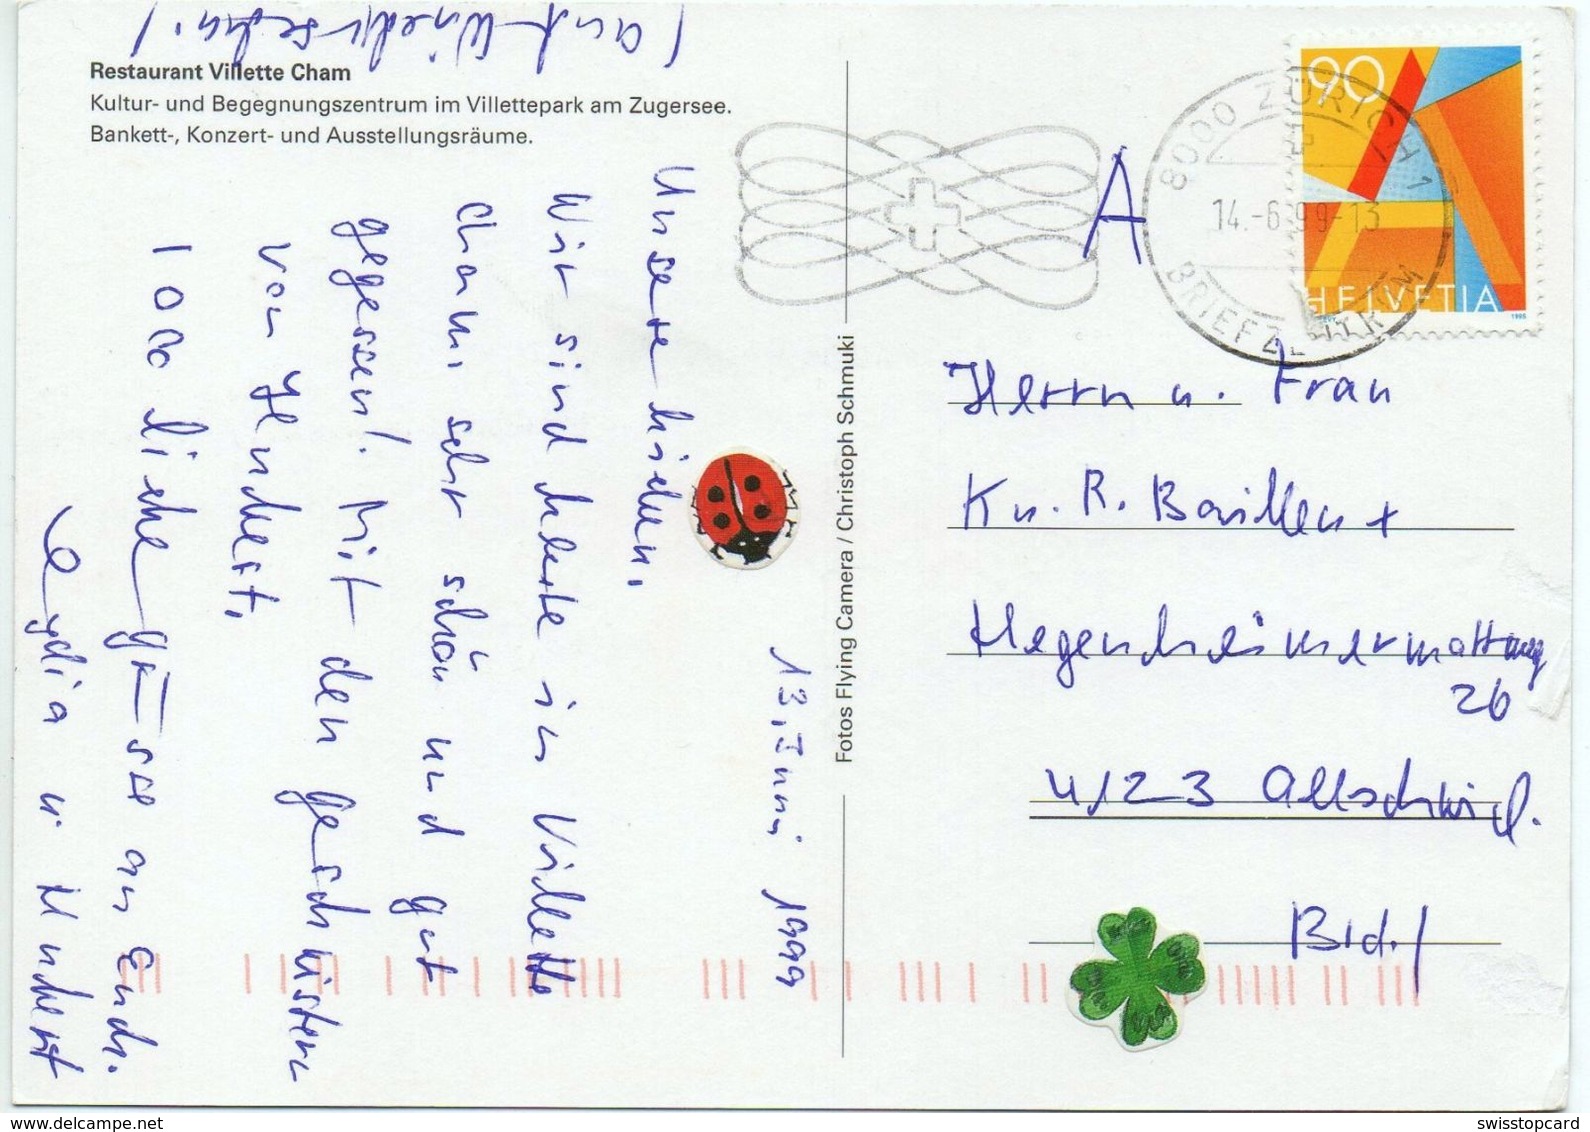 Restaurant Villette Cham
Kultur- und Begegnungszentrum im Villettepark am Zugersee.
Bankett-, Konzert- und Ausstellungsräume.
13. Juni 1999
Unsere lieben,
Wir sind heute in Villette
Cham, sehr schön und gut
gegessen! Mit den Geschwistern
von Hubert,
1000 liebe grüsse an Euch.
Lydia u. Hubert
(auf Wiedersehen!
Fotos Flying Camera / Christoph Schmuki
A
8000 ZÜRICH 1
14.-6.99-13
BRIEFZENTRUM
90
HELVETIA
1995
Herrn u. Frau
R.
Hegenheimermattweg
26
4123 Allschwil.
Bld.!
swisstopcard